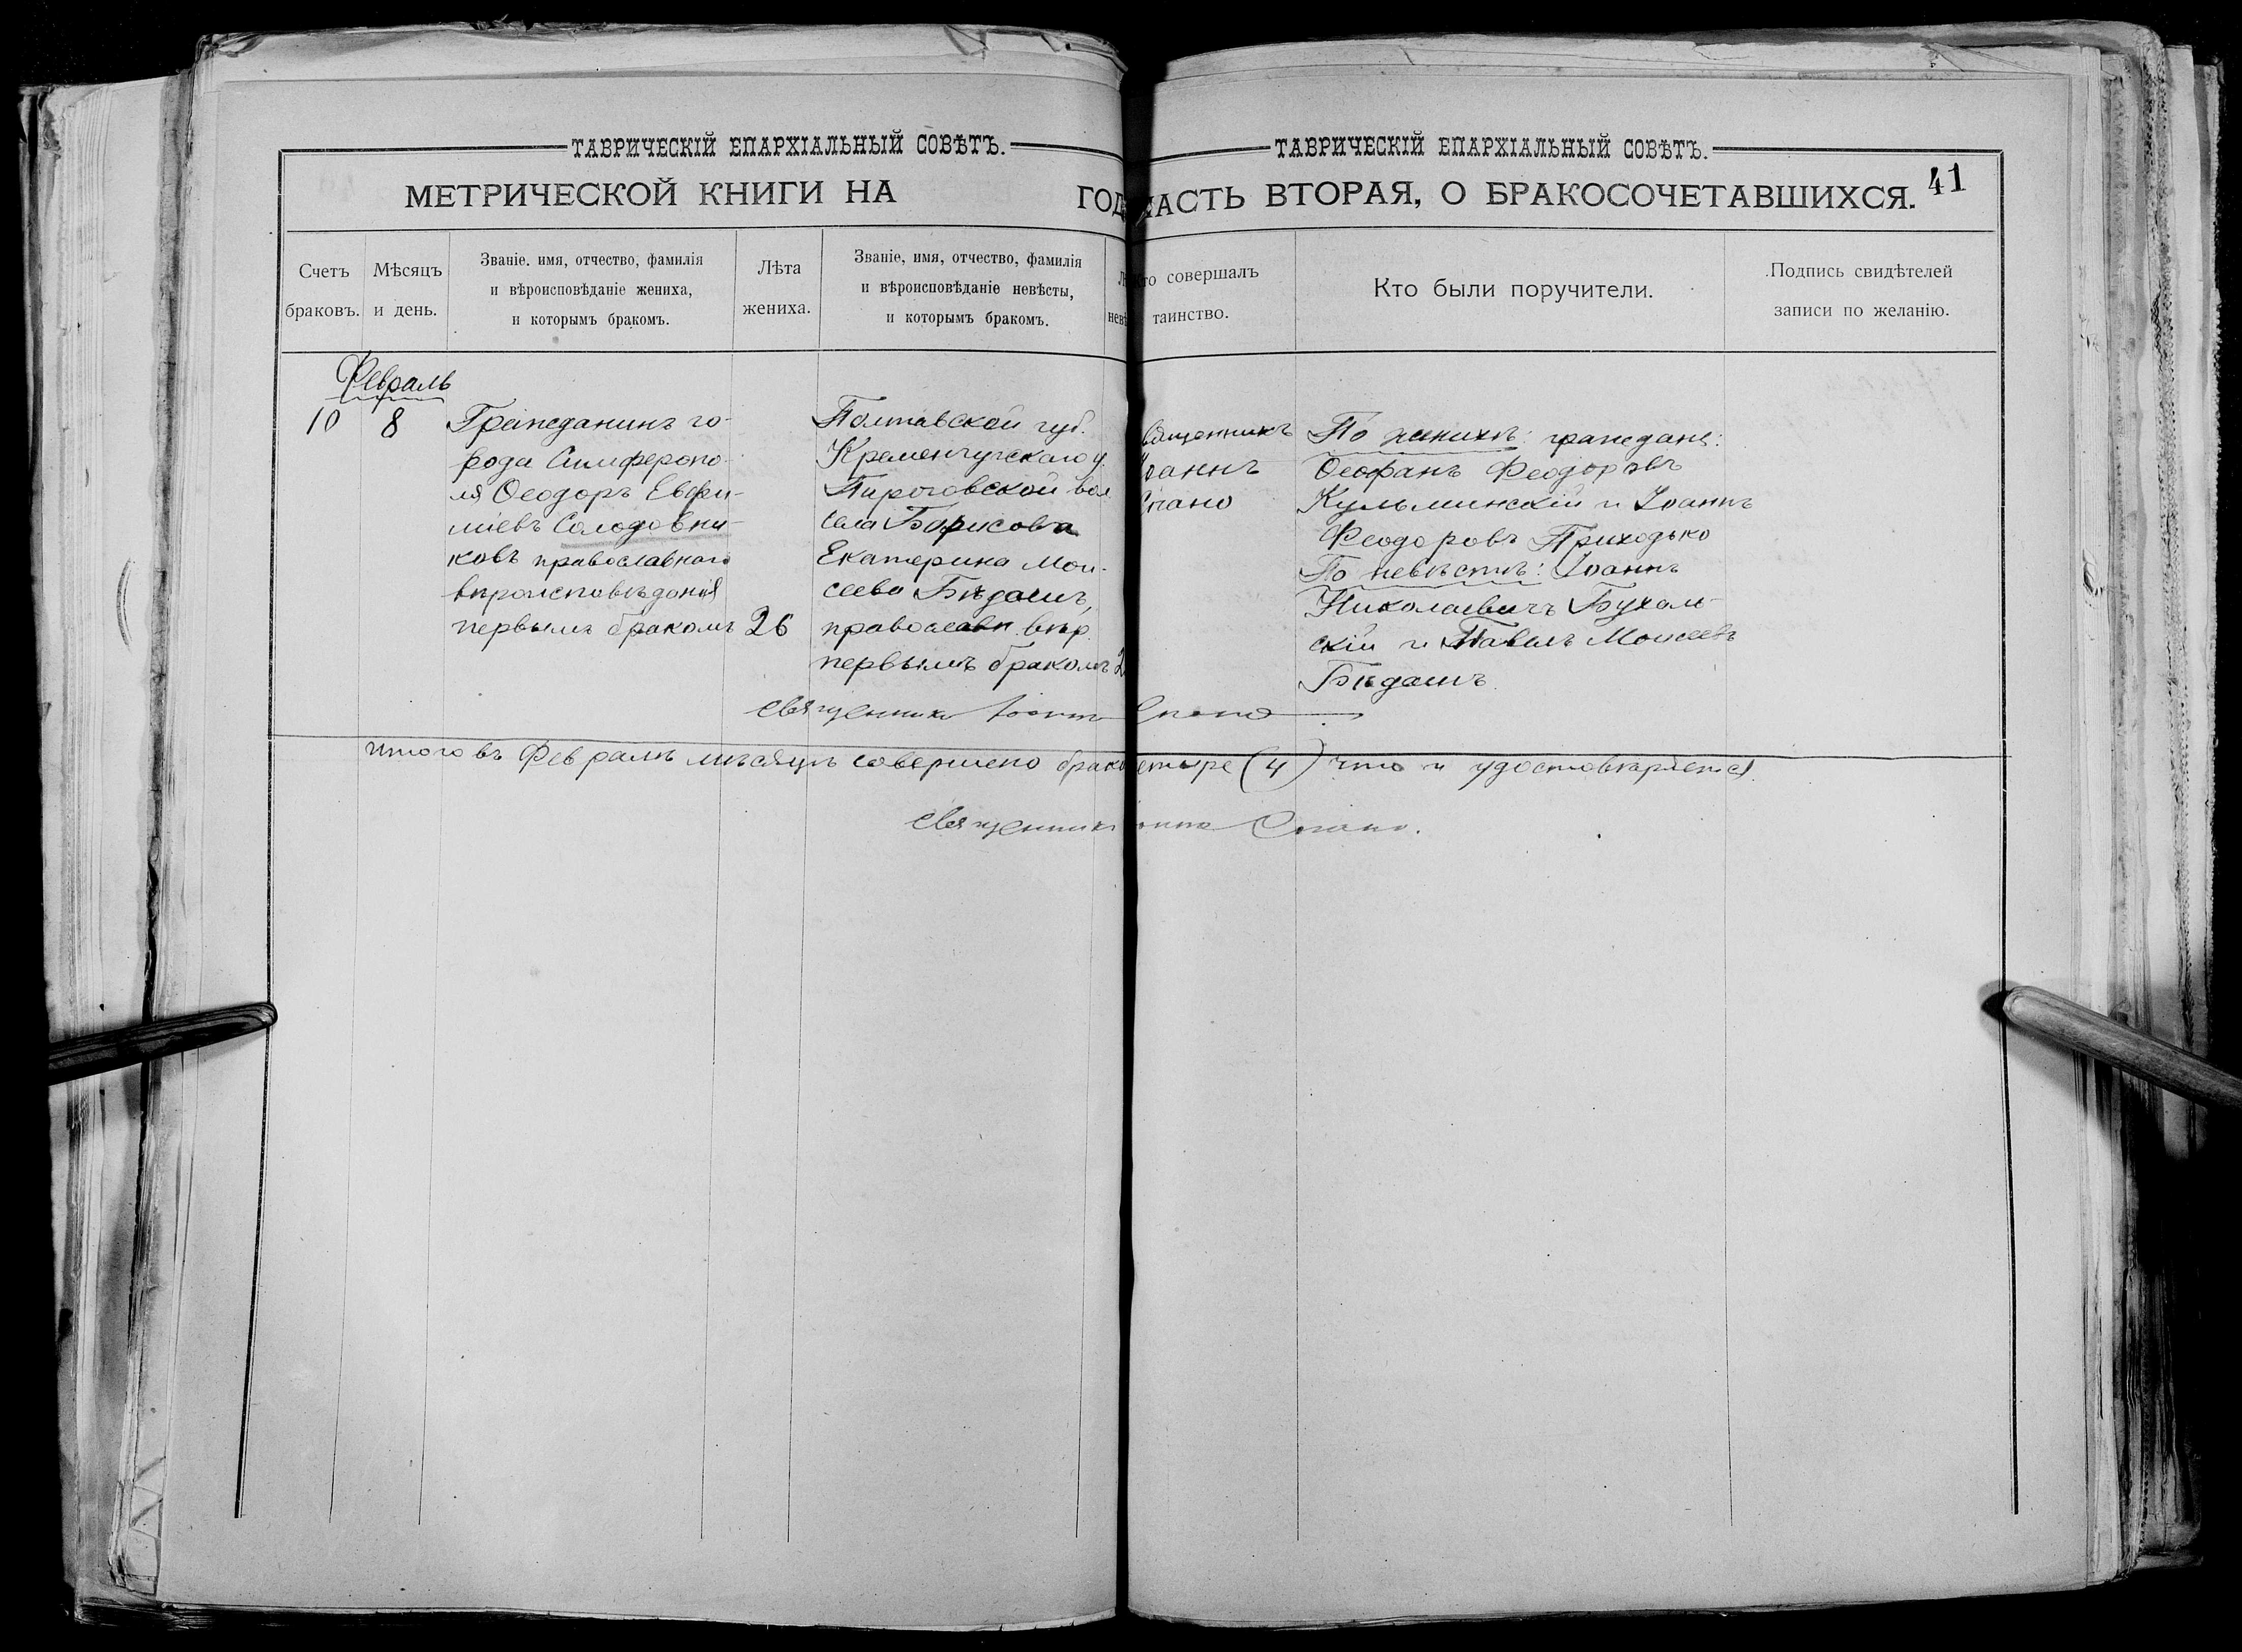 ТАВРИЧЕСКІЙ ЕПАРХІАЛЬНЫЙ СОВѢТЪ.
МЕТРИЧЕСКОЙ КНИГИ НА ГОД
Счетъ браковъ.
Мѣсяцъ и день.
Званіе. имя, отчество, фамилія
и вѣроисповѣданіе жениха,
и которымъ бракомъ.
Лѣта
жениха.
Званіе, имя, отчество, фамилія
и вѣроисповѣданіе невѣсты,
и которымъ бракомъ.
Февраль
10 8
Гражданинъ го-
рода Симферопо-
ля Ѳеодоръ Евфи-
міевъ Солодовни-
ковъ православнаго
вѣроисповѣданія
первымъ бракомъ
26
Полтавской губ.
Кременчугскаго у.
Пироговской вол.
села Борисовка
Екатерина Мои-
сеева Бѣдашъ,
православн. вѣр.
первымъ бракомъ 2
ТАВРИЧЕСКІЙ ЕПАРХІАЛЬНЫЙ СОВѢТЪ.
ЧАСТЬ ВТОРАЯ, О БРАКОСОЧЕТАВШИХСЯ. 41
Кто совершалъ
таинство.
Кто были поручители.
Подпись свидѣтелей
записи по желанію.
священникъ
Іоаннъ
Спано
По женихѣ: граждане:
Ѳеофанъ Феодоровъ
Кульминскій и Іоаннъ
Феодоровъ Приходько
По невѣстѣ: Іоаннъ
Николаевичъ Бухаль-
скій и Павелъ Моисеевъ
Бѣдашъ.
священникъ Іоаннъ Спано
Итого въ Февралѣ мѣсяцѣ совершено брако етыре (4) что и удостовѣряется.
священникъ оаннъ Спано.